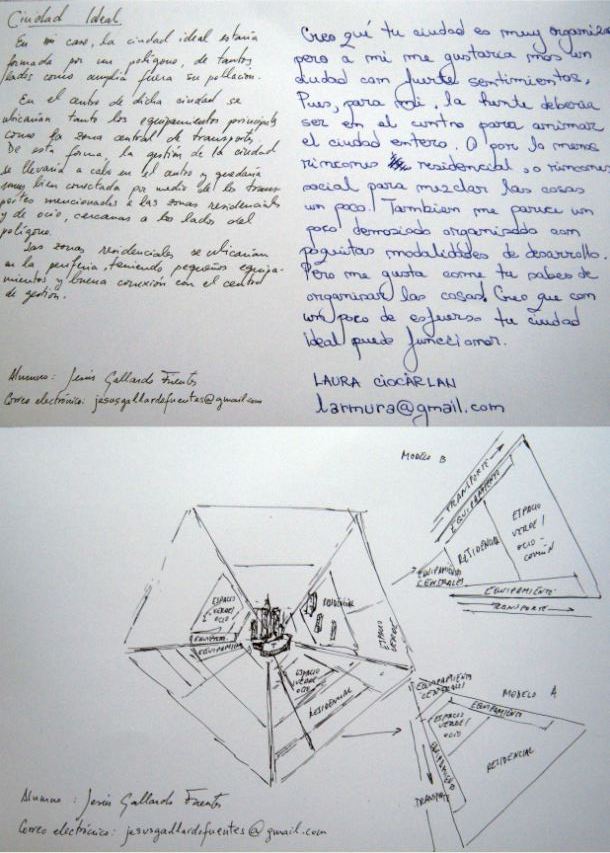 Ciudad Ideal
En mi caso, la ciudad ideal estaría
formada por un polígono, de tantos
lados como amplia fuera su poblacion.
En el centro de dicha ciudad se
ubicarian tanto los equipamientos principales
como la zona central de transportes.
De esta forma, la gestión de la ciudad
se llevaria a cabo en el centro y quedaria
muy bien conectada por medio de los trans-
portes mencionados a las zonas residenciales
y de ocio, cercanas a los lados del
polígono.
Las zonas residenciales se ubicarian
en la periferia, teniendo pequeños equipa-
mientos y buena conexión con el centro
de gestión.
Alumno: Jesús Gallardo Fuentes
Correo electrónico: jesusgallardofuentes@gmail.com
Creo qué tu ciudad es muy organiza
pero a mi me gustaria mas un
ciudad con fuerte sentimientos.
Pues, para mi, la fuente deberia
ser en el centro para animar
el ciudad entero. O por lo menos
rincones residencial, o rincones
social para mezclar las cosas
un poco! Tambien me parece un
poco demasiado organizado con
poquitas modalidades de desarrollo.
Pero me gusta como tu sabes de
organizar las cosas. Creo que con
un poco de esfuerso tu ciudad
ideal puede funccionar.
LAURA CIOCÂRLAN
larmura@gmail.com
MODELO B
TRANSPORTE
EQUIPAMIENTO
ESPACIO
VERDE/
OCIO -
COMÚN
RESIDENCIAL
EQUIPAMIENTO
CENTRALES
EQUIPAMIENTO
TRANSPORTE
ESPACIO
VERDE/
OCIO
RESIDENCIAL
ESPACIO
VERDE
EQUIPAM.
EQUIPAMIEN
ESPACIO
VERDE
OCIO
RESIDENCIAL
EQUIPAMIENTO
CENTRALES
MODELO A
EQUIPAMIENTO
ESPACIO
VERDE/
OCIO
EQUIPAMIENTO
RESIDENCIAL
TRANSPORTE
Alumno: Jesús Gallardo Fuentes
Correo electrónico: jesusgallardofuentes@gmail.com